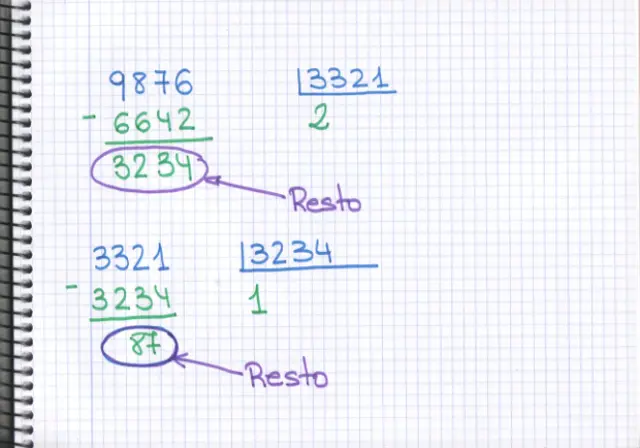 9876 3321
- 6642 2
3234
Resto
3321 3234
- 3234 1
87
Resto